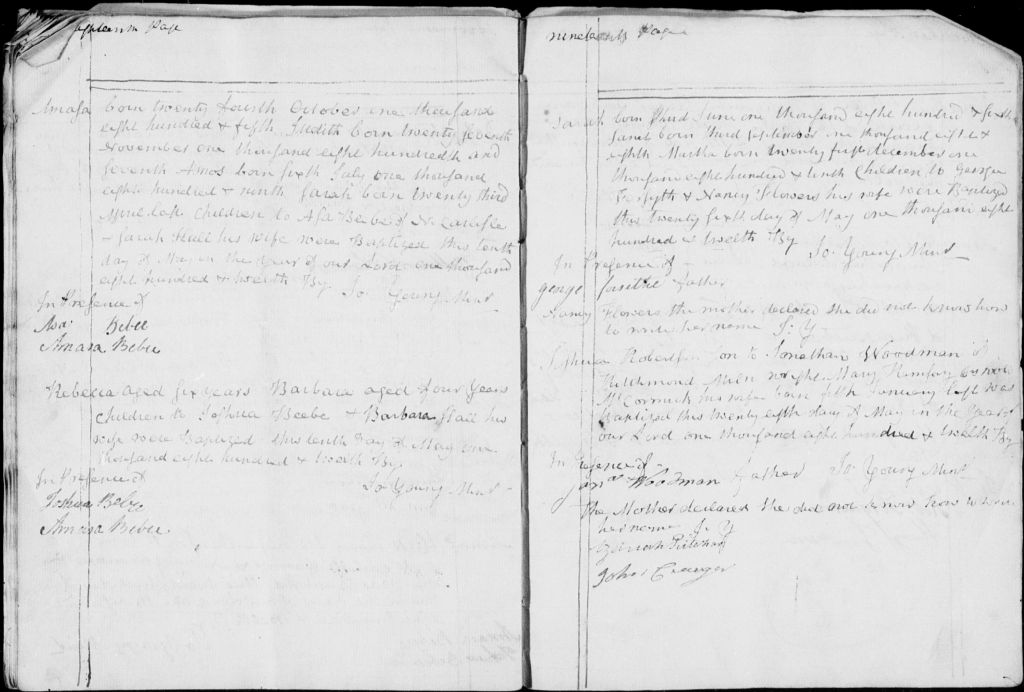 Page
Amasa born twenty fourth October one thousand
eight hundred & fifth Judith born twenty seventh
November one thousand eight hundredth and
seventh Amos born sixth July one thousand
eight hundred & ninth Sarah born twenty third
last Children to Asa Beebe of
& Sarah Hall his wife were Baptized this tenth
day of May in the year of our Lord one thousand
eight hundred & twelth By Jo Young Minr
In Presence of
Asa Bebee
Amasa Bebee
Rebecca aged six years Barbara aged four years
Children to Joshua Beebe & Barbara Hall his
wife were Baptized this tenth day of May one
thousand eight hundred & twelth By
In Presence of Jo Young Minr
Joshua Bebe
Amasa Bebee
nineteenth Page
Sarah born third June one thousand eight hundred & sixth
Janet born third September one thousand eight &
eighth Martha born twenty first december one
thousand eight hundred & tenth Children to George
Forsyth & Nancy Flowers his wife were Baptized
this twenty sixth day of May one thousand eight
hundred & twelth By Jo Young Minr
In Presence of
George father
Nancy Flowers the mother declared she did not know how
to write her name J. Y
Joshua Robertson Son to Jonathan Woodman of
Richmond Mary
McCormick his wife born fifth January last was
Baptized this twenty eighth day of May in the Year of
our Lord one thousand eight hundred & twelth By
In Presence of
Woodman father Jo Young Minr
The Mother declared she did not know how to write
her name J. Y
John